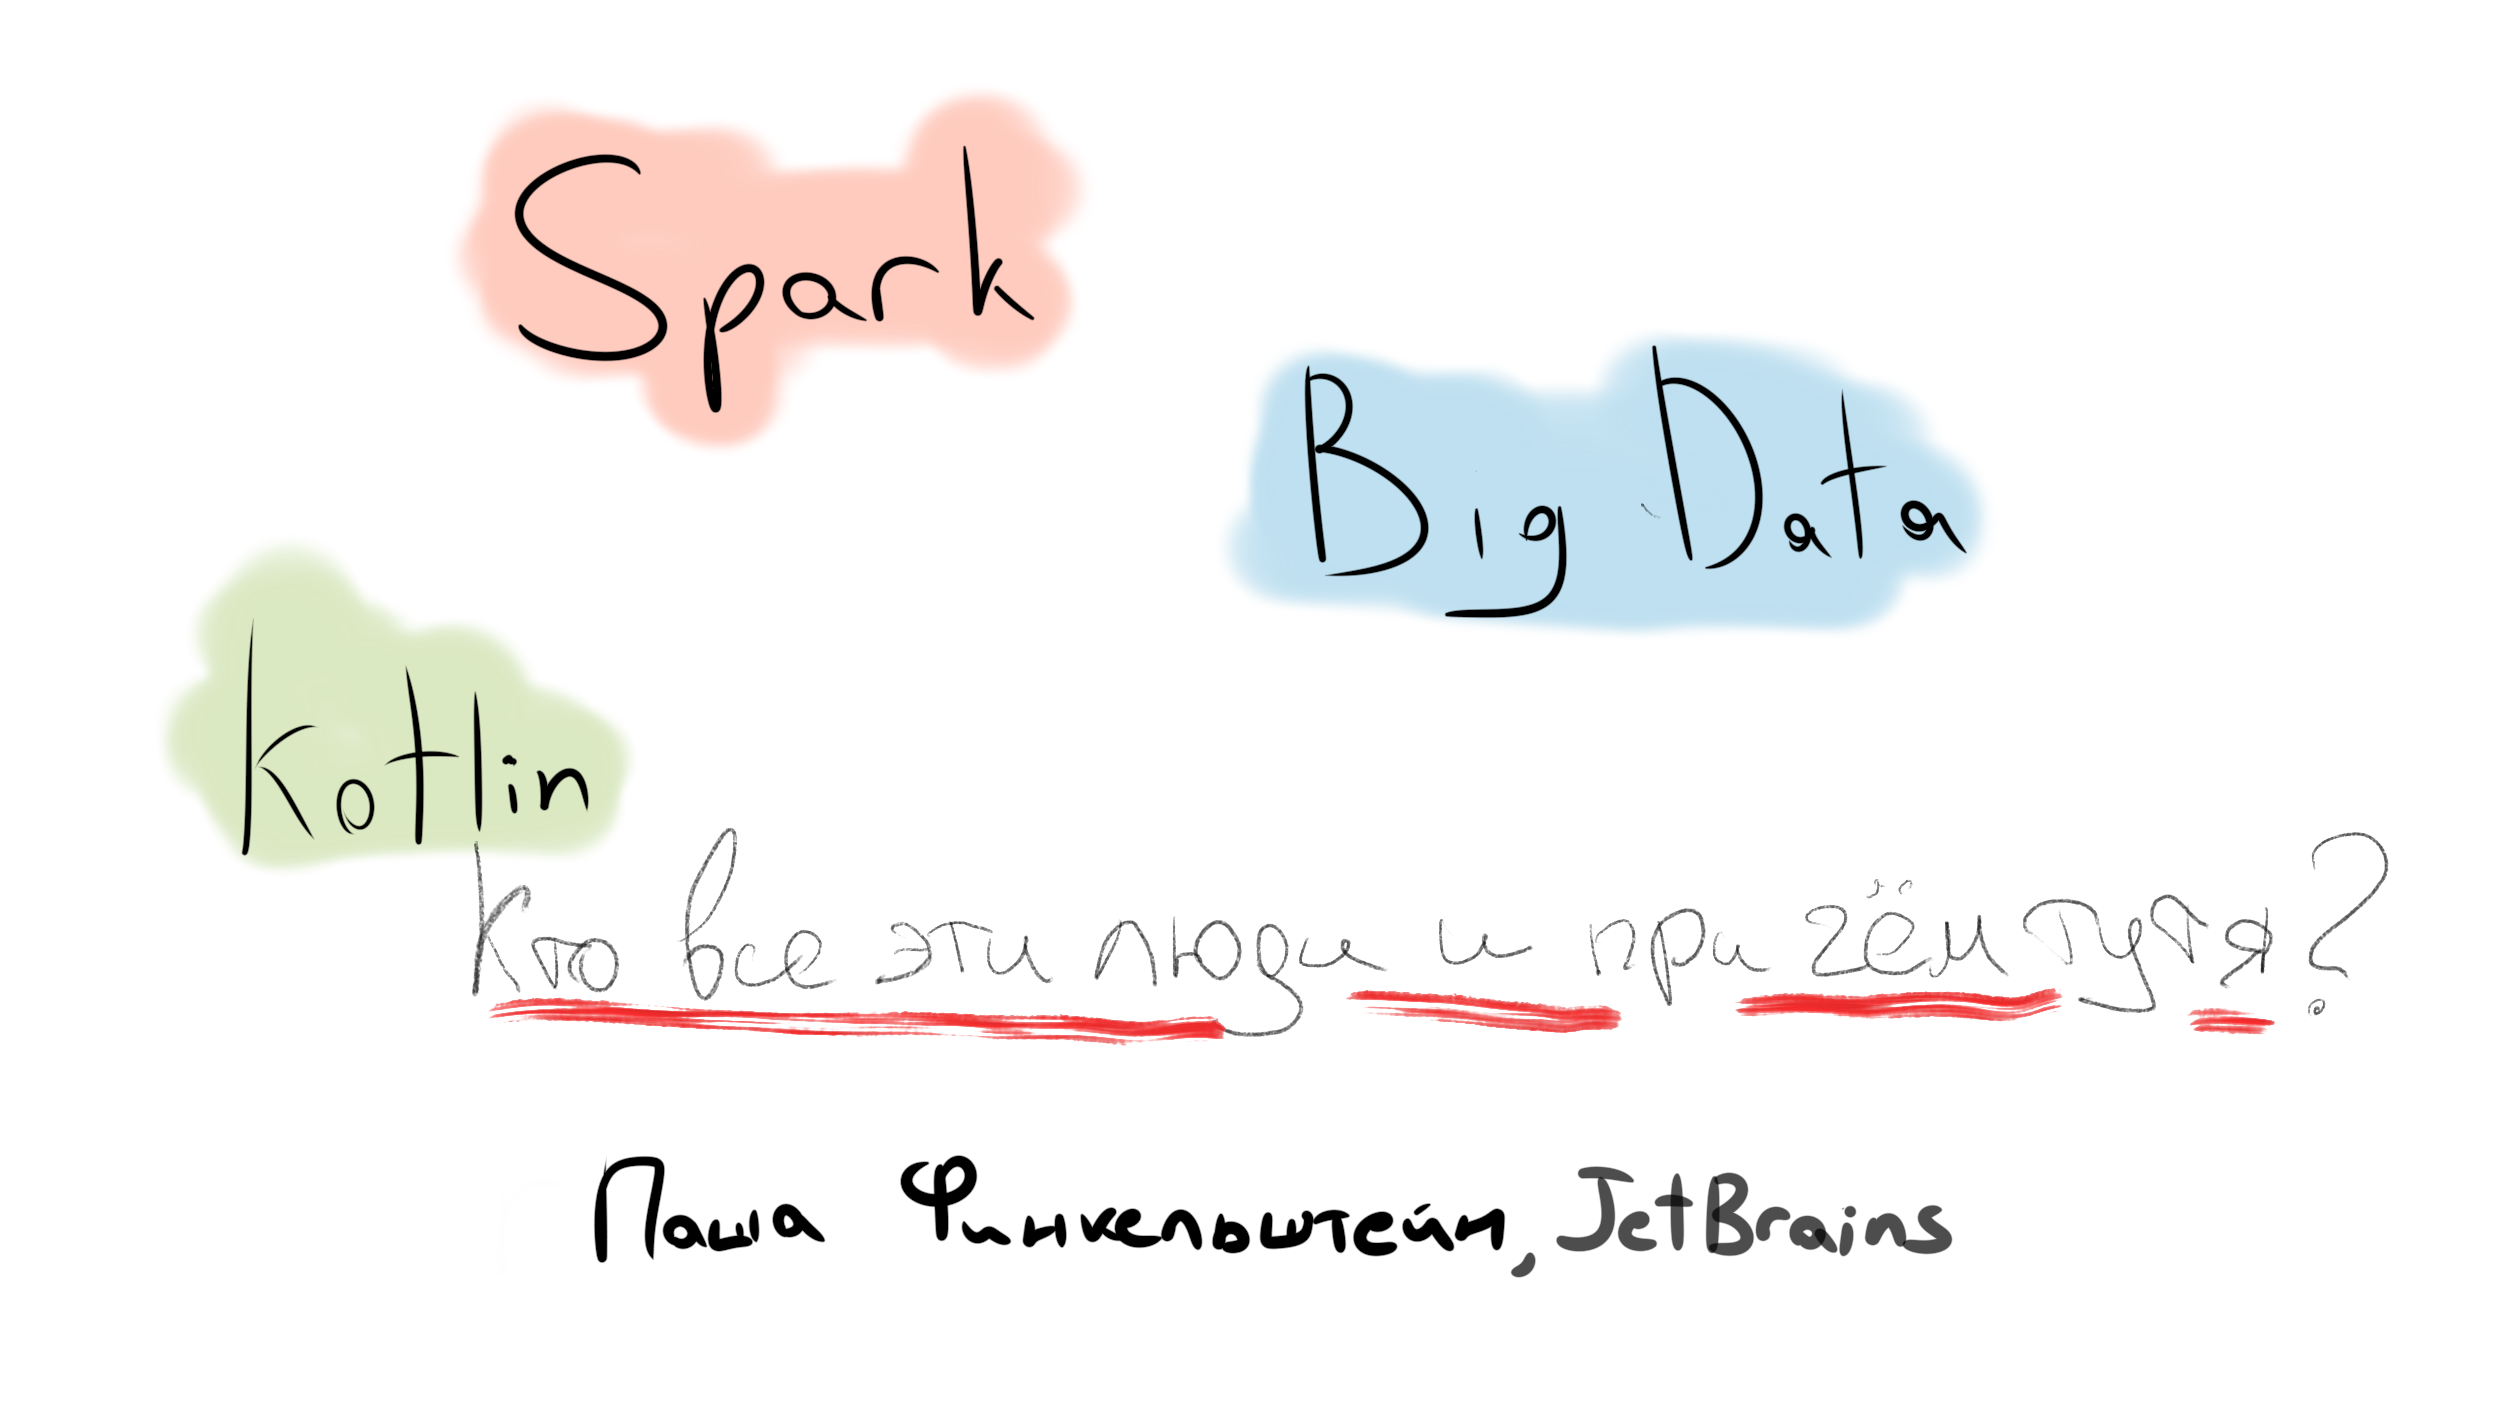 Spark
Big Data
Kotlin
Кто все эти люди и при чём тут я?
Паша Финкельштейн, JetBrains